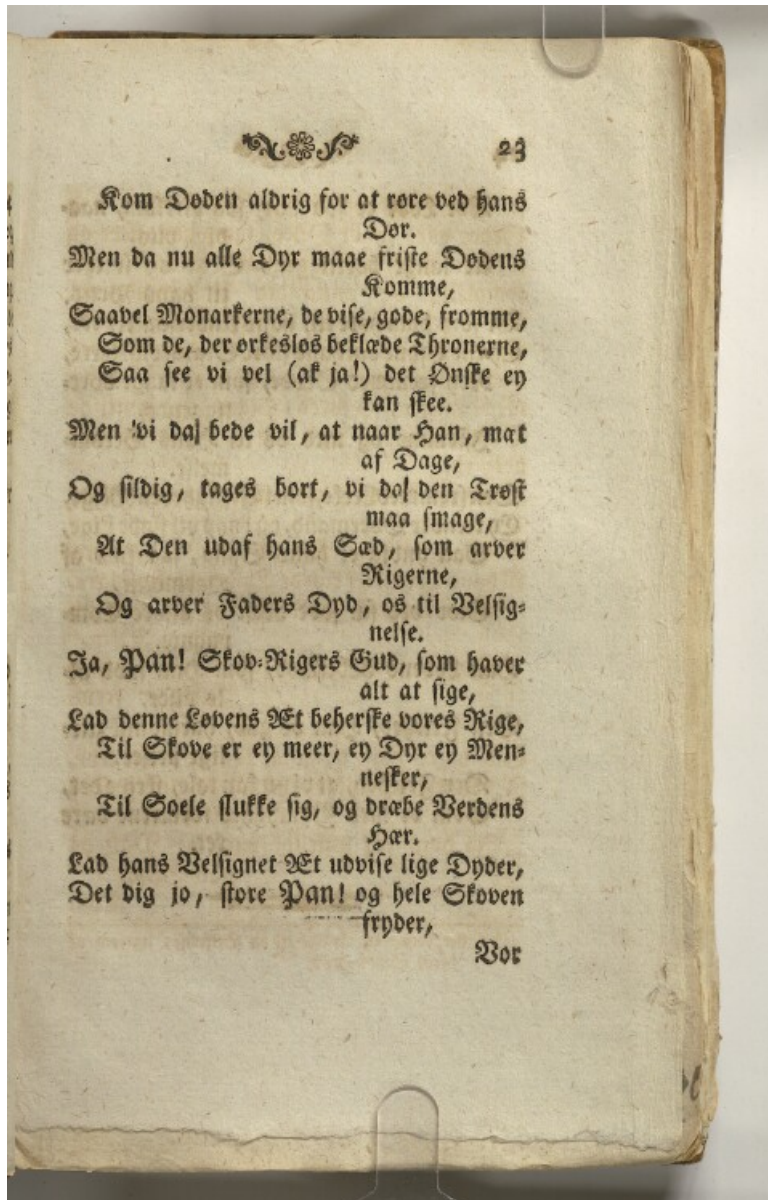 23
Kom Døden aldrig for at røre ved hans
Dør.
Men da nu alle Dyr maae friste Dødens
Komme,
Saavel Monarkerne, de vise, gode, fromme,
Som de, der ørkesløs beklæde Thronerne,
Saa see vi vel (ak ja!) det Ønske ey
kan skee.
Men vi da bede vil, at naar Han, mæt
af Dage,
Og sildig, tages bort, vi da den Trøst
maa smage,
At Den udaf hans Sæd, som arver
Rigerne,
Og arver Faders Dyd, os til Velsig-
nelse.
Ja, Pan! Skov-Rigers Gud, som haver
alt at sige,
Lad denne Løvens Æt beherske vores Rige,
Til Skove er ey meer, ey Dyr ey Men-
nesker,
Til Soele slukke sig, og dræbe Verdens
Hær.
Lad hans Velsignet Æt udvise lige Dyder,
Det dig jo, store Pan! og hele Skoven
fryder,
Vor